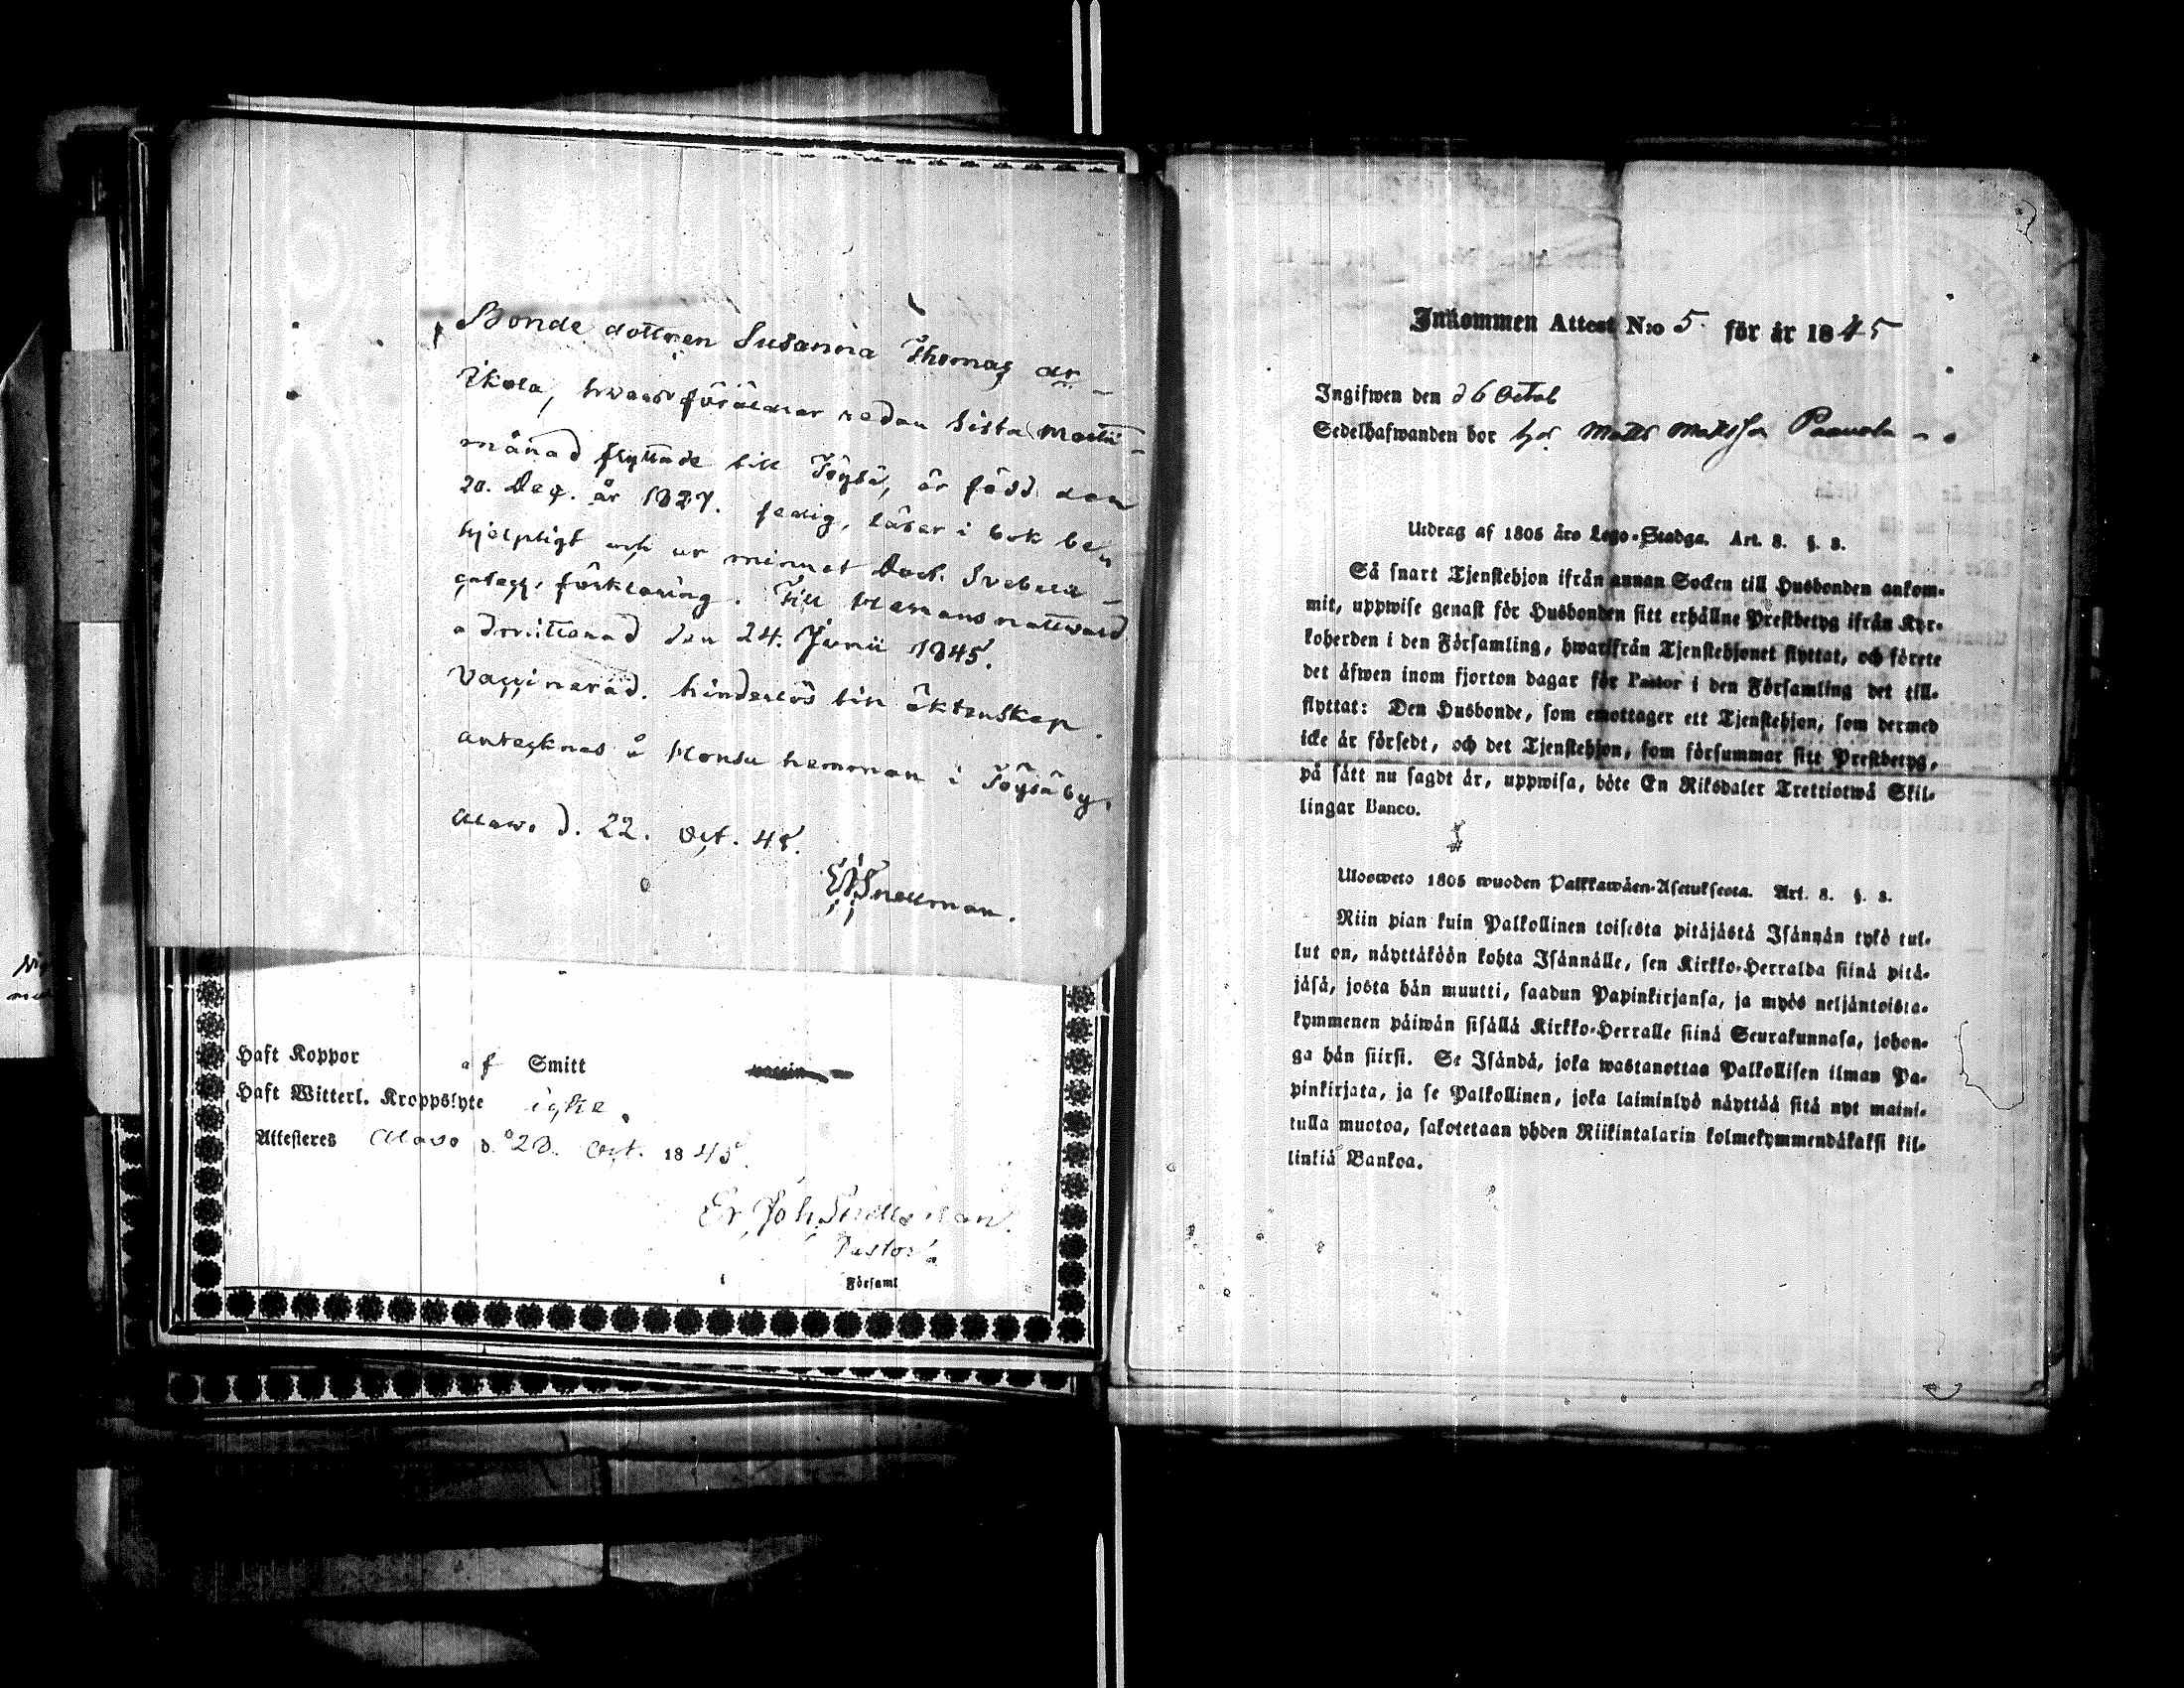 Bonde dottren Susanna Thomas dr
Ikola, hwars föräldrar redan sista Martii
månad flyttade till Töysä, är född den
20. Dec. år 1827. fredig, läser i bok be
hjelpligt och ur minnet Doct. Svebelii
förklaring. Till HErrans nattward
admitterad den 24. Junii 1845.
Vaccinerad. hinderlös till äktenskap
antecknas å hemman i Töysäby.
Alavo d. 22. Oct. 45.
Snellman.
Haft Koppor af Smitt
Haft Witterl. Kroppslyte icke.
Attesteres Alavo d. 20. Oct. 1845.
Er. Joh. Snellman.
Pastor
i Församl
Inkommen Attest N:o 5. för år 1845
Ingifwen den 26 Octob
Sedelhafwanden bor hos Matts Mattsson Paavola
Utdrag af 1805 års Lego-Stadga. Art. 8. §. 3.
Så snart Tjenstehjon ifrån annan Socken till Husbonden ankom-
mit, uppwise genast för Husbonden sitt erhållne Prestbetyg ifrån Kyr-
koherden i den Församling, hwarifrån Tjenstehjonet flyttat, och förete
det äfwen inom fjorton dagar för Pastor i den Församling det till-
flyttat: Den Husbonde, som emottager ett Tjenstehjon, som dermed
icke är försedt, och det Tjenstehjon, som försummar sitt Prestbetyg,
på sätt nu sagdt är, uppwisa, böte En Riksdaler Trettiotwå Skil-
lingar Banco.
Ulosweto 1805 wuoden Palkkawäen-Asetuksesta. Art. 8. §. 3.
Niin pian kuin Palkollinen toisesta pitäjästä Isännän tykö tul-
lut on, näyttäköön kohta Isännälle, sen Kirkko-Herralda siinä pitä-
jäsä, josta hän muutti, saadun Papinkirjansa, ja myös neljäntoista-
kymmenen päiwän sisällä Kirkko-Herralle siinä Seurakunnasa, johon-
ga hän siirsi. Se Isändä, joka wastanottaa Palkollisen ilman Pa-
pinkirjata, ja se Palkollinen, joka laiminlyö näyttää sitä nyt maini-
tulla muotoa, sakotetaan yhden Riikintalarin kolmekymmendäkaksi kil-
linkiä Bankoa.